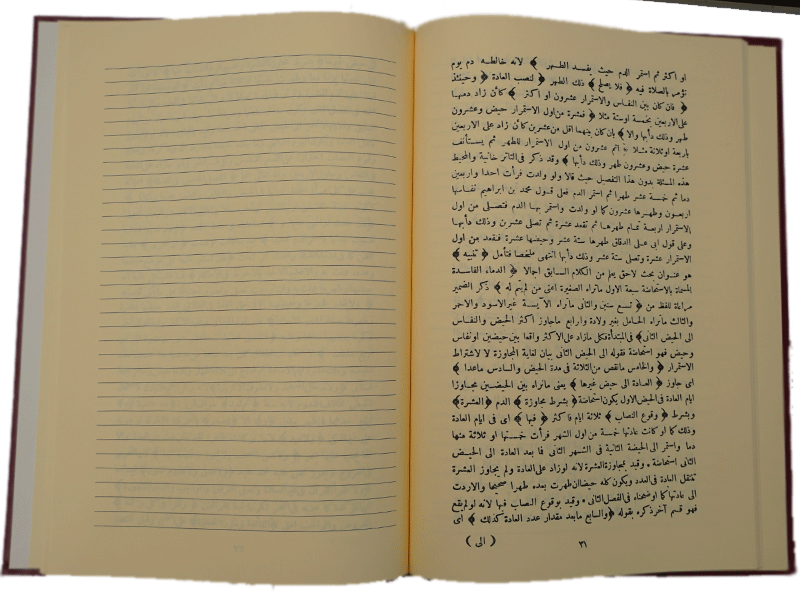 او اكثر ثم استمر الدم حيث يفسد الطهر ﴾ لانه خالطه دم يوم
تؤمر بالصلاة فيه ﴿ فلا يصلح ﴾ ذلك الطهر ﴿ لنصب العادة ﴾ وحينئذ
﴿ فان كان بين النفاس والاستمرار عشرون او اكثر ﴾ كأن زاد دمها
على الاربعين بخمسة اوستة مثلا ﴿ فعشرة من اول الاستمرار حيض وعشرون
طهر وذلك دأبها والا ﴾ بان كان بينهما اقل من عشرين كأن زاد على الاربعين
باربعة اوثلاثة مثلا ﴿ اتم عشرون من اول الاستمرار للطهر ثم يستأنف
عشرة حيض وعشرون طهر وذلك دأبها ﴾ وقد ذكر فى التاتر خانية والمحيط
هذه المسئلة بدون هذا التفصيل حيث قالا ولو ولدت فرأت احدا واربعين
دما ثم خمسة عشر طهرا ثم استمر الدم فعلى قول محمد بن ابراهيم نفاسها
اربعون وطهرها عشرون كما لو ولدت واستمر بها الدم فتصلى من اول
الاستمرار اربعة تمام طهرها ثم تقعد عشرة ثم تصلى عشرين وذلك دأبها
وعلى قول ابى على الدقاق طهرها ستة عشر وحيضها عشرة فتقعد من اول
الاستمرار عشرة وتصلى ستة عشر وذلك دأبها انتهى ملخصا فتأمل ﴿ تنبيه ﴾
هو عنوان بحث لاحق يعلم من الكلام السابق اجمالا ﴿ الدماء الفاسدة
المسماة بالاستحاضة سبعة الاول ماتراه الصغيرة اعنى من لم يتم له ﴾ ذكر الضمير
مراعاة للفظ من ﴿ تسع سنين والثانى ماتراه الآيسة غير الاسود والاحمر
والثالث ماتراه الحامل بغير ولادة والرابع ماجاوز اكثر الحيض والنفاس
الى الحيض الثانى ﴾ فى المبتدأة فكل مازاد على الاكثر واقعا بين حيضين اونفاس
وحيض فهو استحاضة فقوله الى الحيض الثانى بيان لغاية المجاوزة لا لاشتراط
الاستمرار ﴿ والخامس مانقص من الثلاثة فى مدة الحيض والسادس ماعدا ﴾
اى جاوز ﴿ العادة الى حيض غيرها ﴾ يعنى ماتراه بين الحيضين مجاوزا
ايام العادة فى الحيض الاول يكون استحاضة ﴿ بشرط مجاوزة ﴾ الدم ﴿ العشرة ﴾
وبشرط ﴿ وقوع النصاب ﴾ ثلاثة ايام فاكثر ﴿ فيها ﴾ اى فى ايام العادة
وذلك كما لو كانت عادتها خمسة من اول الشهر فرأت خمستها او ثلاثة منها
دما واستمر الى الحيضة الثانية فى الشهر الثانى فما بعد العادة الى الحيض
الثانى استحاضة • وقيد بمجاوزة العشرة لانه لوزاد على العادة ولم يجاوز العشرة
تنتقل العادة فى العدد ويكون كله حيضا ان طهرت بعده طهرا صحيحا والاردت
الى عادتها كما اوضحناه فى الفصل الثانى • وقيد بوقوع النصاب فيها لانه لو لم يقع
فهو قسم آخر ذكره بقوله ﴿ والسابع مابعد مقدار عدد العادة كذلك ﴾ اى
٣١
( الى )